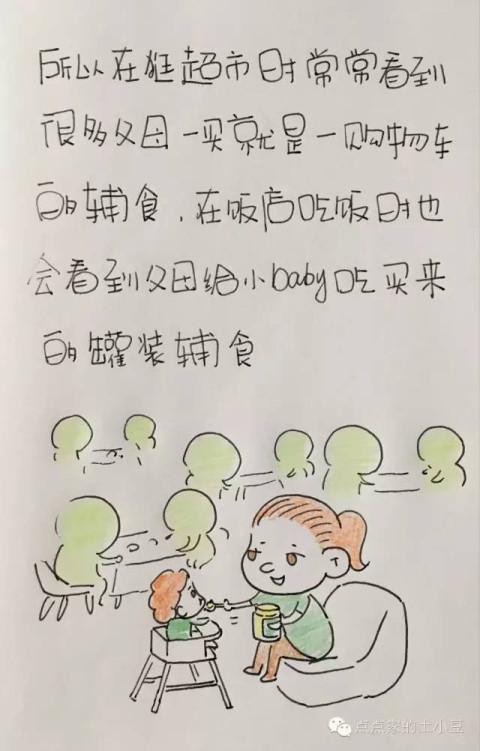 所以在逛超市时常常看到
很多父母一买就是一购物车
的辅食、在饭店吃饭时也
会看到父母给小baby吃买来
的罐装辅食
点点家的土小豆